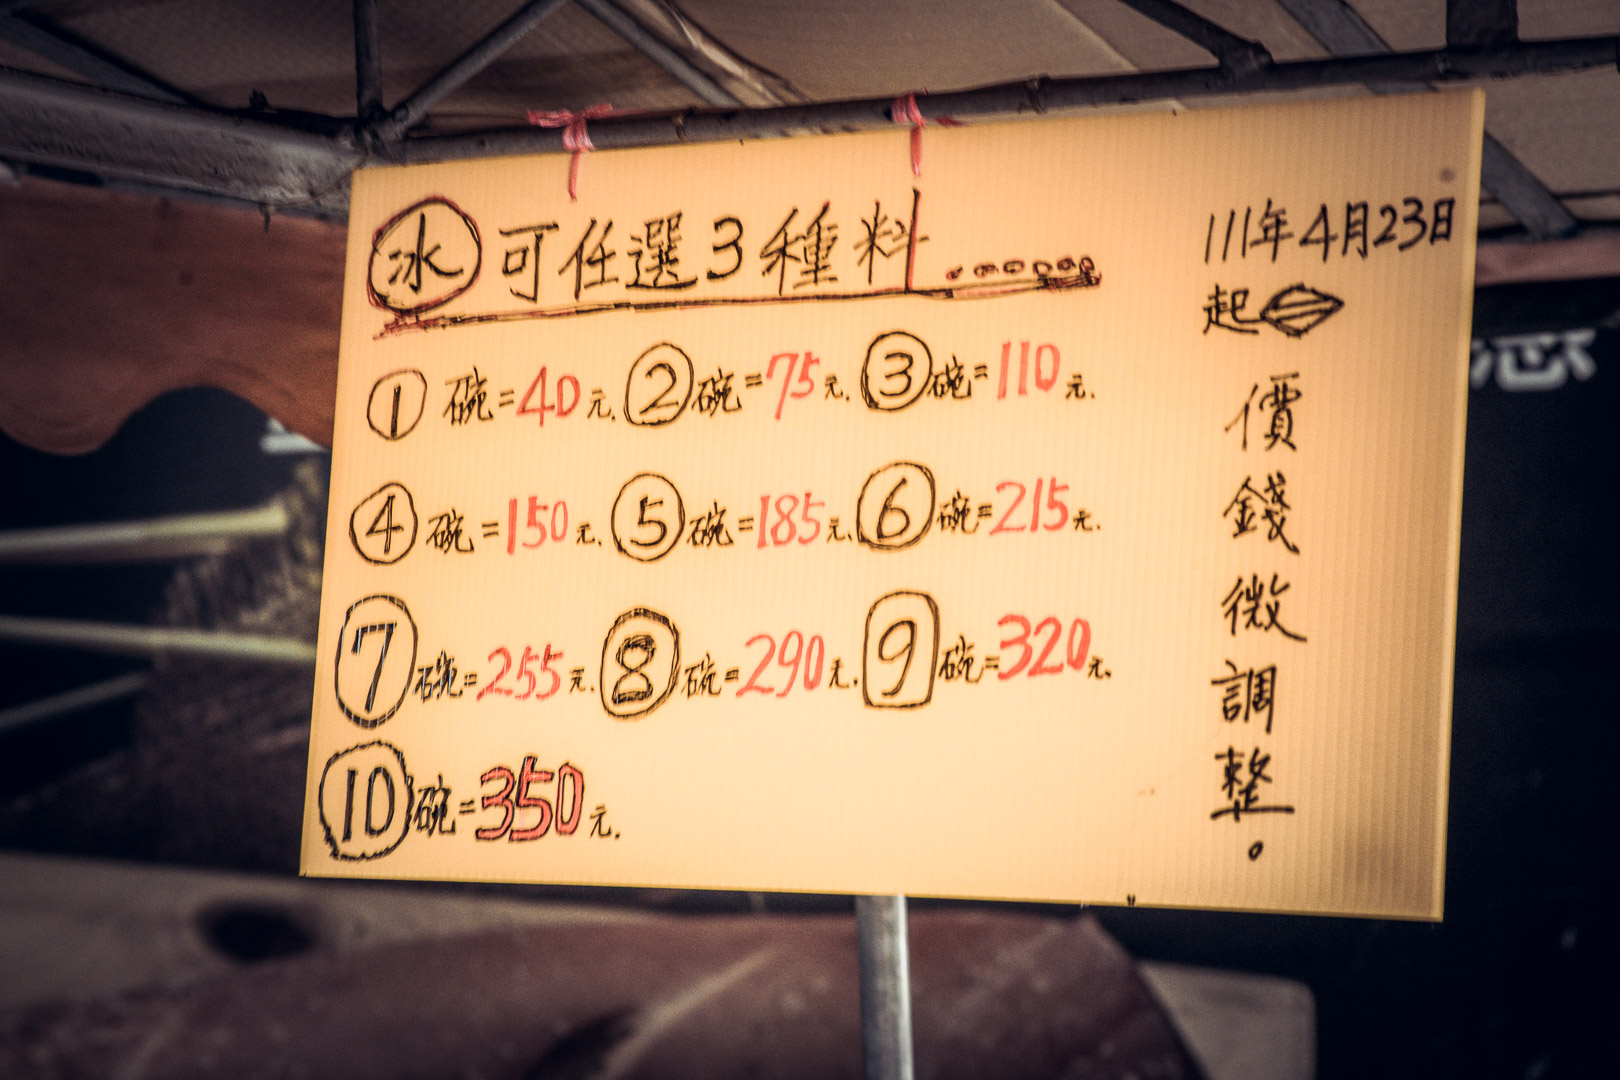 冰 可任選3種料......
1碗=40元. 2碗=75元. 3碗=110元.
4碗=150元. 5碗=185元. 6碗=215元.
7碗=255元. 8碗=290元. 9碗=320元.
10碗=350元.
111年4月23日
起
價錢微調整。